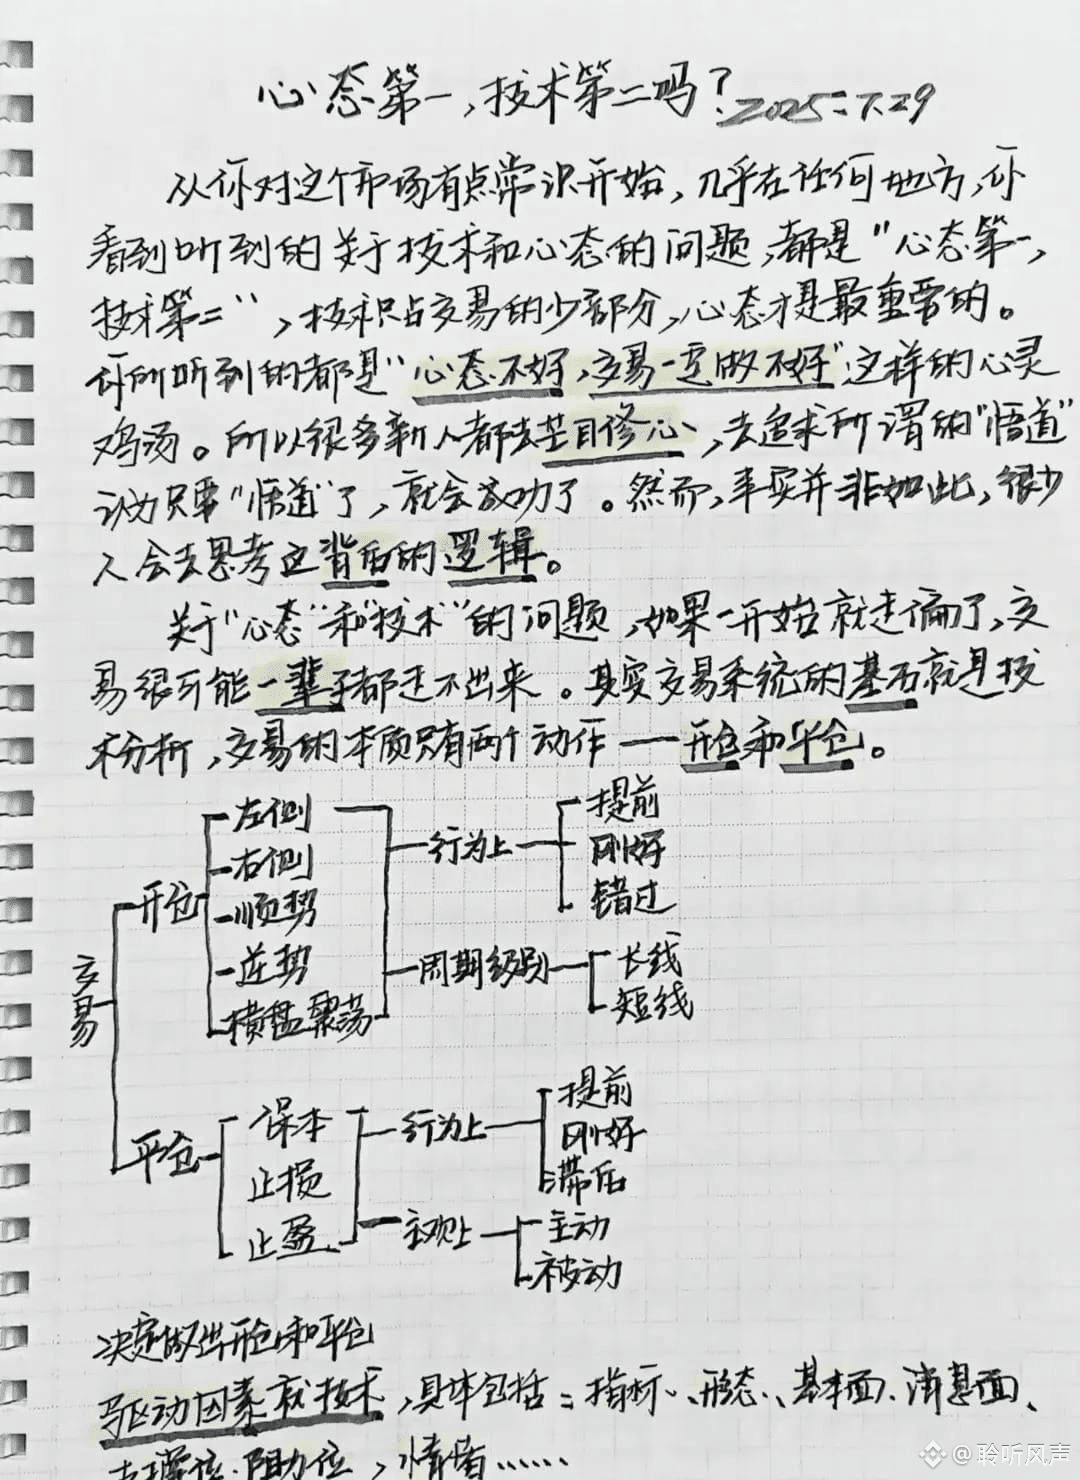 心态第一,技术第二吗?2025.7.29
从你对这个市场有点常识开始,几乎在任何地方,你
看到听到的关于技术和心态的问题,都是"心态第一,
技术第二",技术只占交易的少部分,心态才是最重要的。
你所听到的都是"心态不好,交易一定做不好"这样的心灵
鸡汤。所以很多新人都去盲目修心,去追求所谓的"悟道"
认为只要"悟道"了,就会成功了。然而,事实并非如此,很少
人会去思考这背后的逻辑。
关于"心态"和"技术"的问题,如果一开始就走偏了,交
易很可能一辈子都走不出来。其实交易系统的基石就是技
术分析,交易的本质只有两个动作——开仓和平仓。
交易
开仓
左侧
右侧
顺势
逆势
横盘震荡
行为上
提前
刚好
错过
周期级别
长线
短线
平仓
保本
止损
止盈
行为上
提前
刚好
滞后
主观上
主动
被动
决定做出开仓和平仓
驱动因素就技术,具体包括:指标、形态、基本面、消息面、
支撑位.阻力位,情绪……
@聆听风声